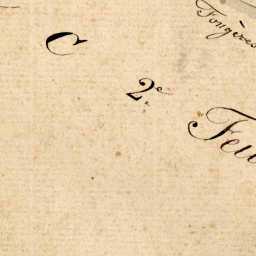 Fougères
C 2e Feu